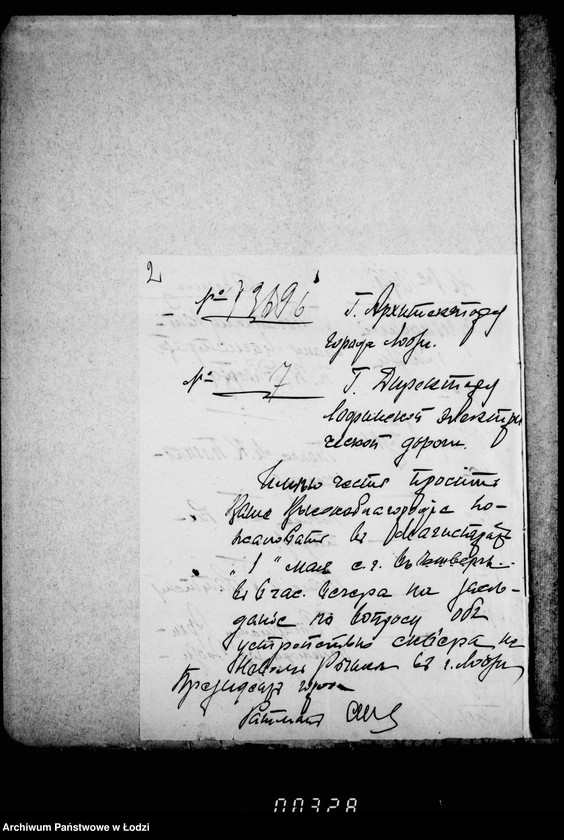 2
№ 73696
Г. Архитектору
города Лодзи.
№ 7
Г. Директору
Лодзинской электри
ческой дороги.
Имѣю честь просить
Ваше Высокоблагородіе по-
жаловать въ Магистратъ
„1" мая с.г. въ четвергъ
въ 6 час. вечера на засѣ-
даніе по вопросу объ
устройствѣ сквера на
Новомъ Рынкѣ въ г. Лодзи
Президентъ города
Ратманъ
00328
Archiwum Państwowe w Łodzi